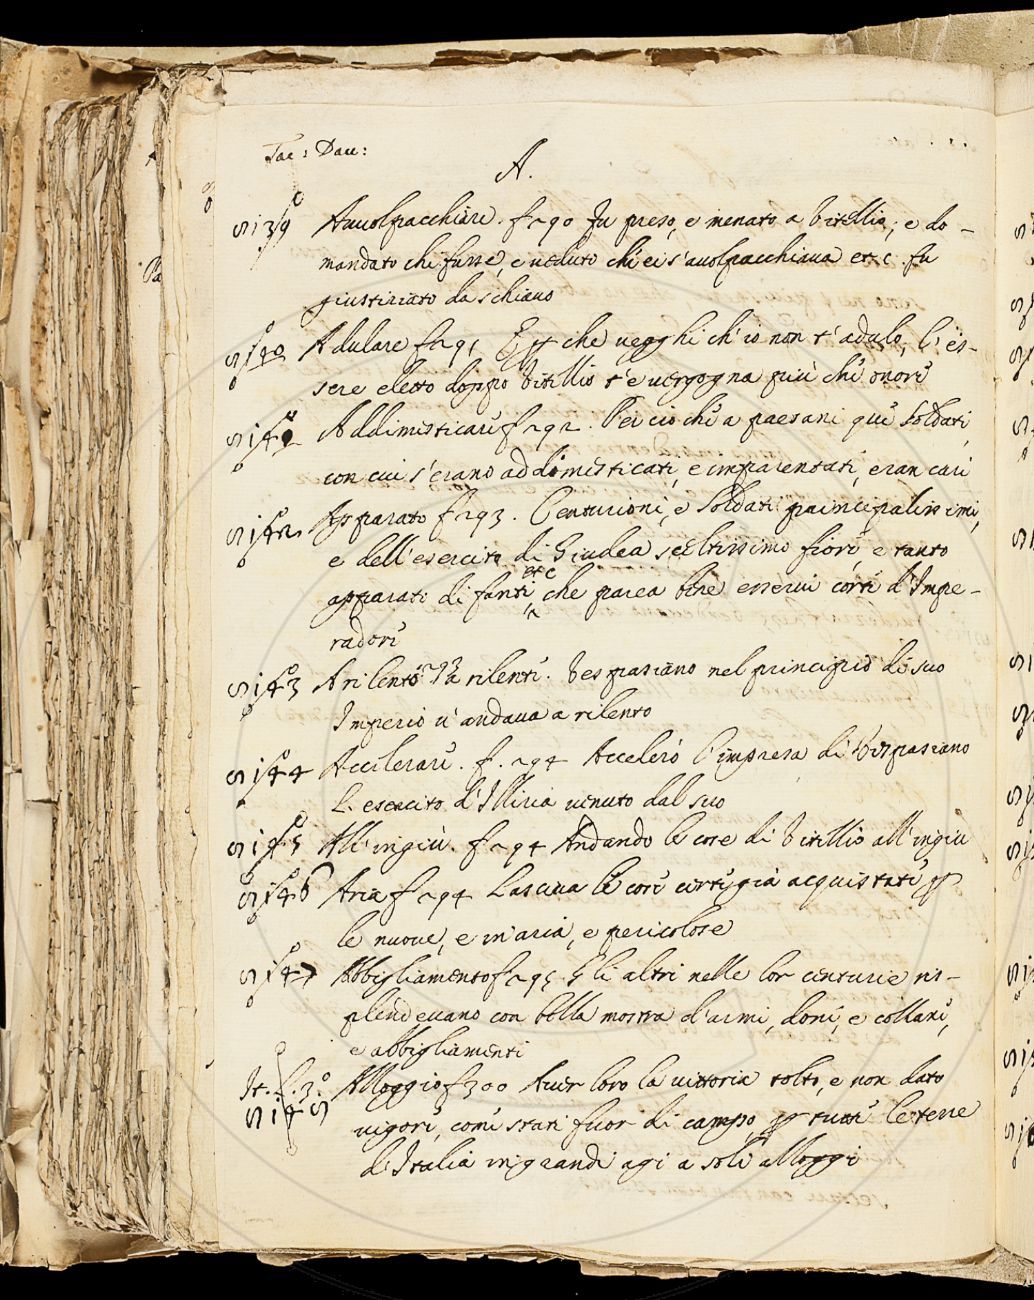 Tac: Dav:
A.
S139 Auuolpacchiare. f 290 Fu preso, e menato a Vitellio, e do-
mandato chi fusse, e ueduto ch'ei s'auolpacchiaua etc. fu
giustiziato da schiauo
S140 Adulare f 291 E pp che uegghi ch'io non t'adulo, l'es-
sere eletto doppo Vitellio t'e uergogna più che onore
S141 Addimesticare f 292. Perciò ch'a paesani que soldati,
con cui s'erano addimesticati, e imparentati, eran cari
S142 Apparato f 293. Centurioni, e Soldati principalissimi,
e dell'esercito di Giudea sceltissimo fiore, e tanto
apparati di fanti etc che parea bene esserui corte d'Impe-
radore
S143 A rilento 293 a rilente. Vespasiano nel principio di suo
Imperio n'andaua a rilento
S144 Accelerare. f. 294 Accelerò l'impresa di Vespasiano
L. esercito d'Illiria uenuto dal suo
S145 All'ingiù. f 294 Andando le cose di Vitellio all'ingiù
S146 Aria f 294 Lasciaua le cose certe già acquistate pp
le nuoue, e in aria, e pericolose
S147 Abbigliamento f 295 Gli altri nelle lor centurie ris-
plendeuano con bella mostra d'armi, doni, e collane,
e abbigliamenti
It. L. 3.º Alloggio f 300 Auer loro la uittoria tolto, e non dato
S148 uigore, come stati fuor di campo pp tutte le terre
d'Italia in grandi agi a soli alloggi